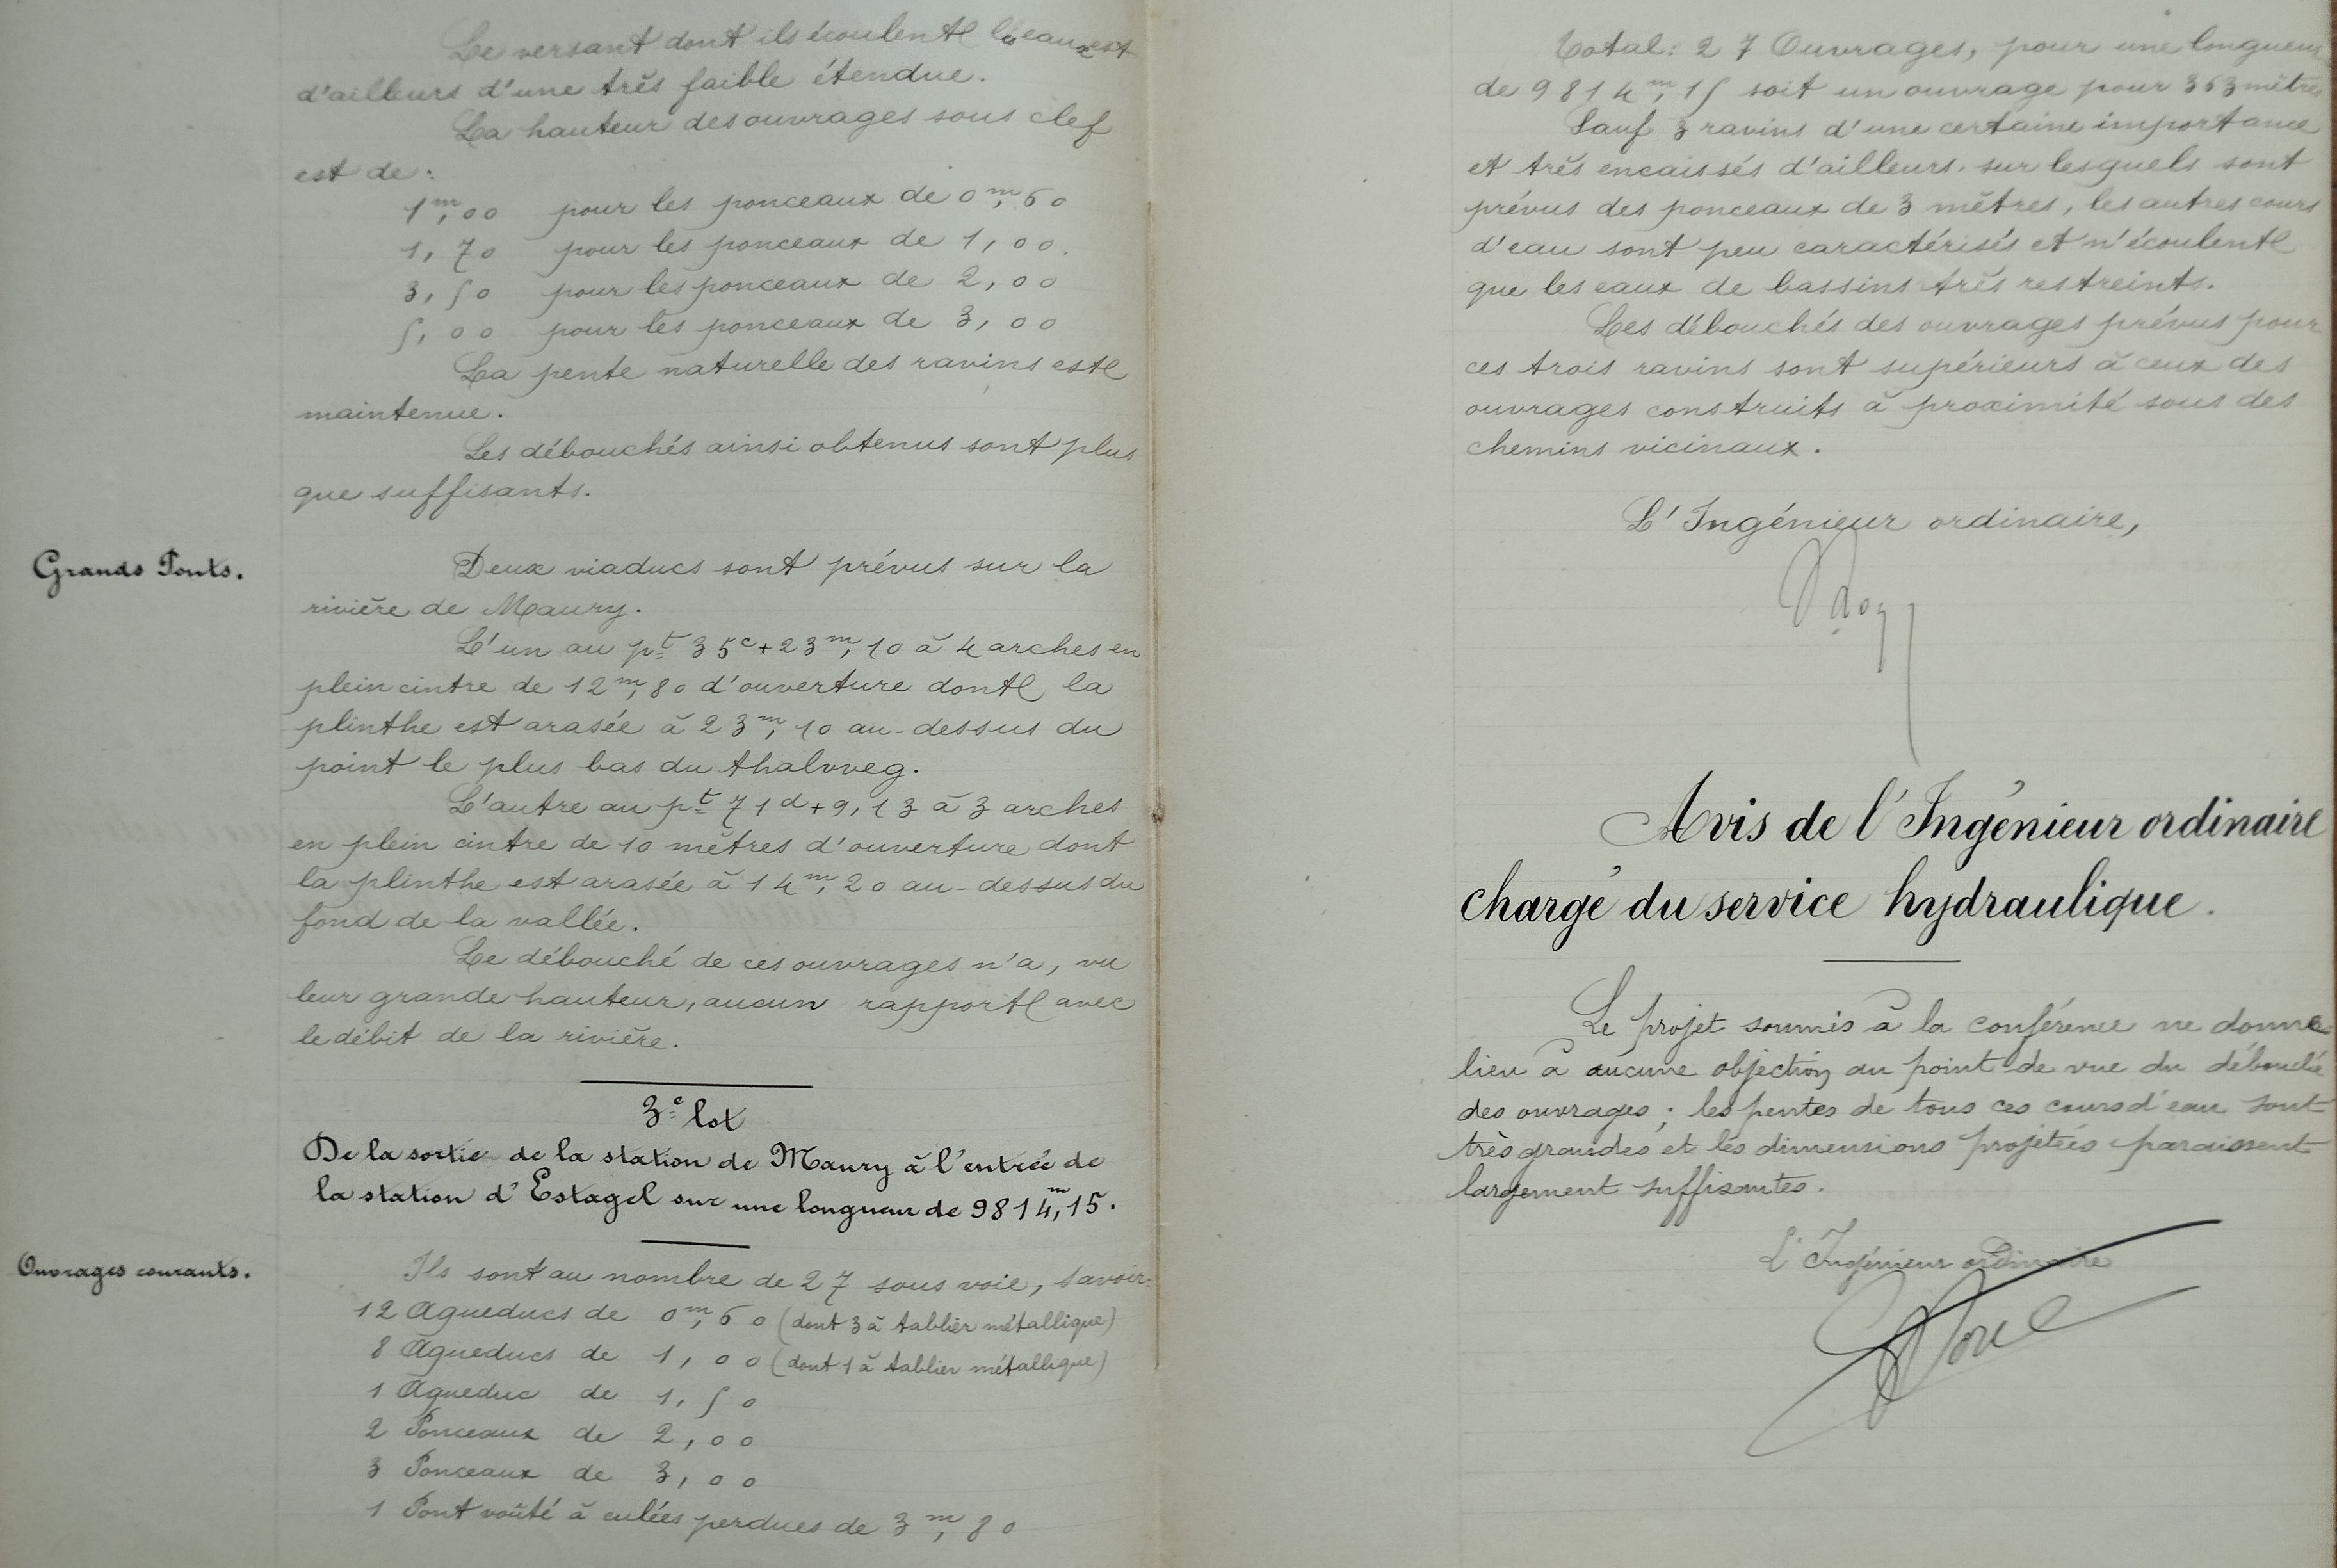 Le versant dont ils écoulent les eaux est
d'ailleurs d'une très faible étendue.
La hauteur des ouvrages sous clef
est de:
1m,00 pour les ponceaux de 0m,60
1,70 pour les ponceaux de 1,00.
3,50 pour les ponceaux de 2,00
5,00 pour les ponceaux de 3,00
La pente naturelle des ravins est
maintenue.
Les débouchés ainsi obtenus sont plus
que suffisants.
Grands Ponts.
Deux viaducs sont prévus sur la
rivière de Maury.
L'un au pt 35c+23m,10 à 4 arches en
plein cintre de 12m,80 d'ouverture dont la
plinthe est arasée à 23m,10 au-dessus du
point le plus bas du thalvveg.
L'autre au pt 71d+9,13 à 3 arches
en plein cintre de 10 mètres d'ouverture dont
la plinthe est arasée à 14m,20 au-dessus du
fond de la vallée.
Le débouché de ces ouvrages n'a, vu
leur grande hauteur, aucun rapport avec
le débit de la rivière.
3e lot
De la sortie de la station de Maury à l'entrée de
la station d'Estagel sur une longueur de 9814m,15.
Ouvrages courants.
Ils sont au nombre de 27 sous voie, savoir:
12 Aqueducs de 0m,60 (dont 3 à tablier métallique)
8 Aqueducs de 1,00 (dont 1 à tablier métallique)
1 Aqueduc de 1,50
2 Ponceaux de 2,00
3 Ponceaux de 3,00
1 Pont voûté à culées perdues de 3m,80
Total: 27 Ouvrages, pour une longueur
de 9814m,15 soit un ouvrage pour 363 mètres
Sauf 3 ravins d'une certaine importance
et très encaissés d'ailleurs. sur lesquels sont
prévus des ponceaux de 3 mètres, les autres cours
d'eau sont peu caractérisés et n'écoulent
que les eaux de bassins très restreints.
Les débouchés des ouvrages prévus pour
ces trois ravins sont supérieurs à ceux des
ouvrages construits à proximité sous des
chemins vicinaux.
L'Ingénieur ordinaire,
Avis de l'Ingénieur ordinaire
chargé du service hydraulique.
Le projet soumis à la conférence ne donne
lieu à aucune objection au point de vue du débouché
des ouvrages; les pentes de tous ces cours d'eau sont
très grandes et les dimensions projetées paraissent
largement suffisantes.
L'Ingénieur ordinaire